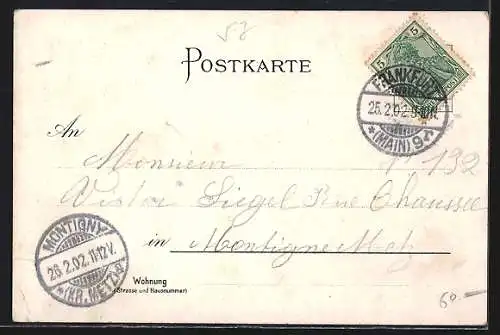 52
POSTKARTE
5 5
FRANKFURT
25.2.02.9-10N.
*(MAIN)9r
An
Monsieur No 132
Victor Siegel Rue Chaussee
in Montigny Metz
MONTIGNY
26.2.02.11-12V.
*(KR. METZ)a
Wohnung
(Strasse und Hausnummer)
60.-